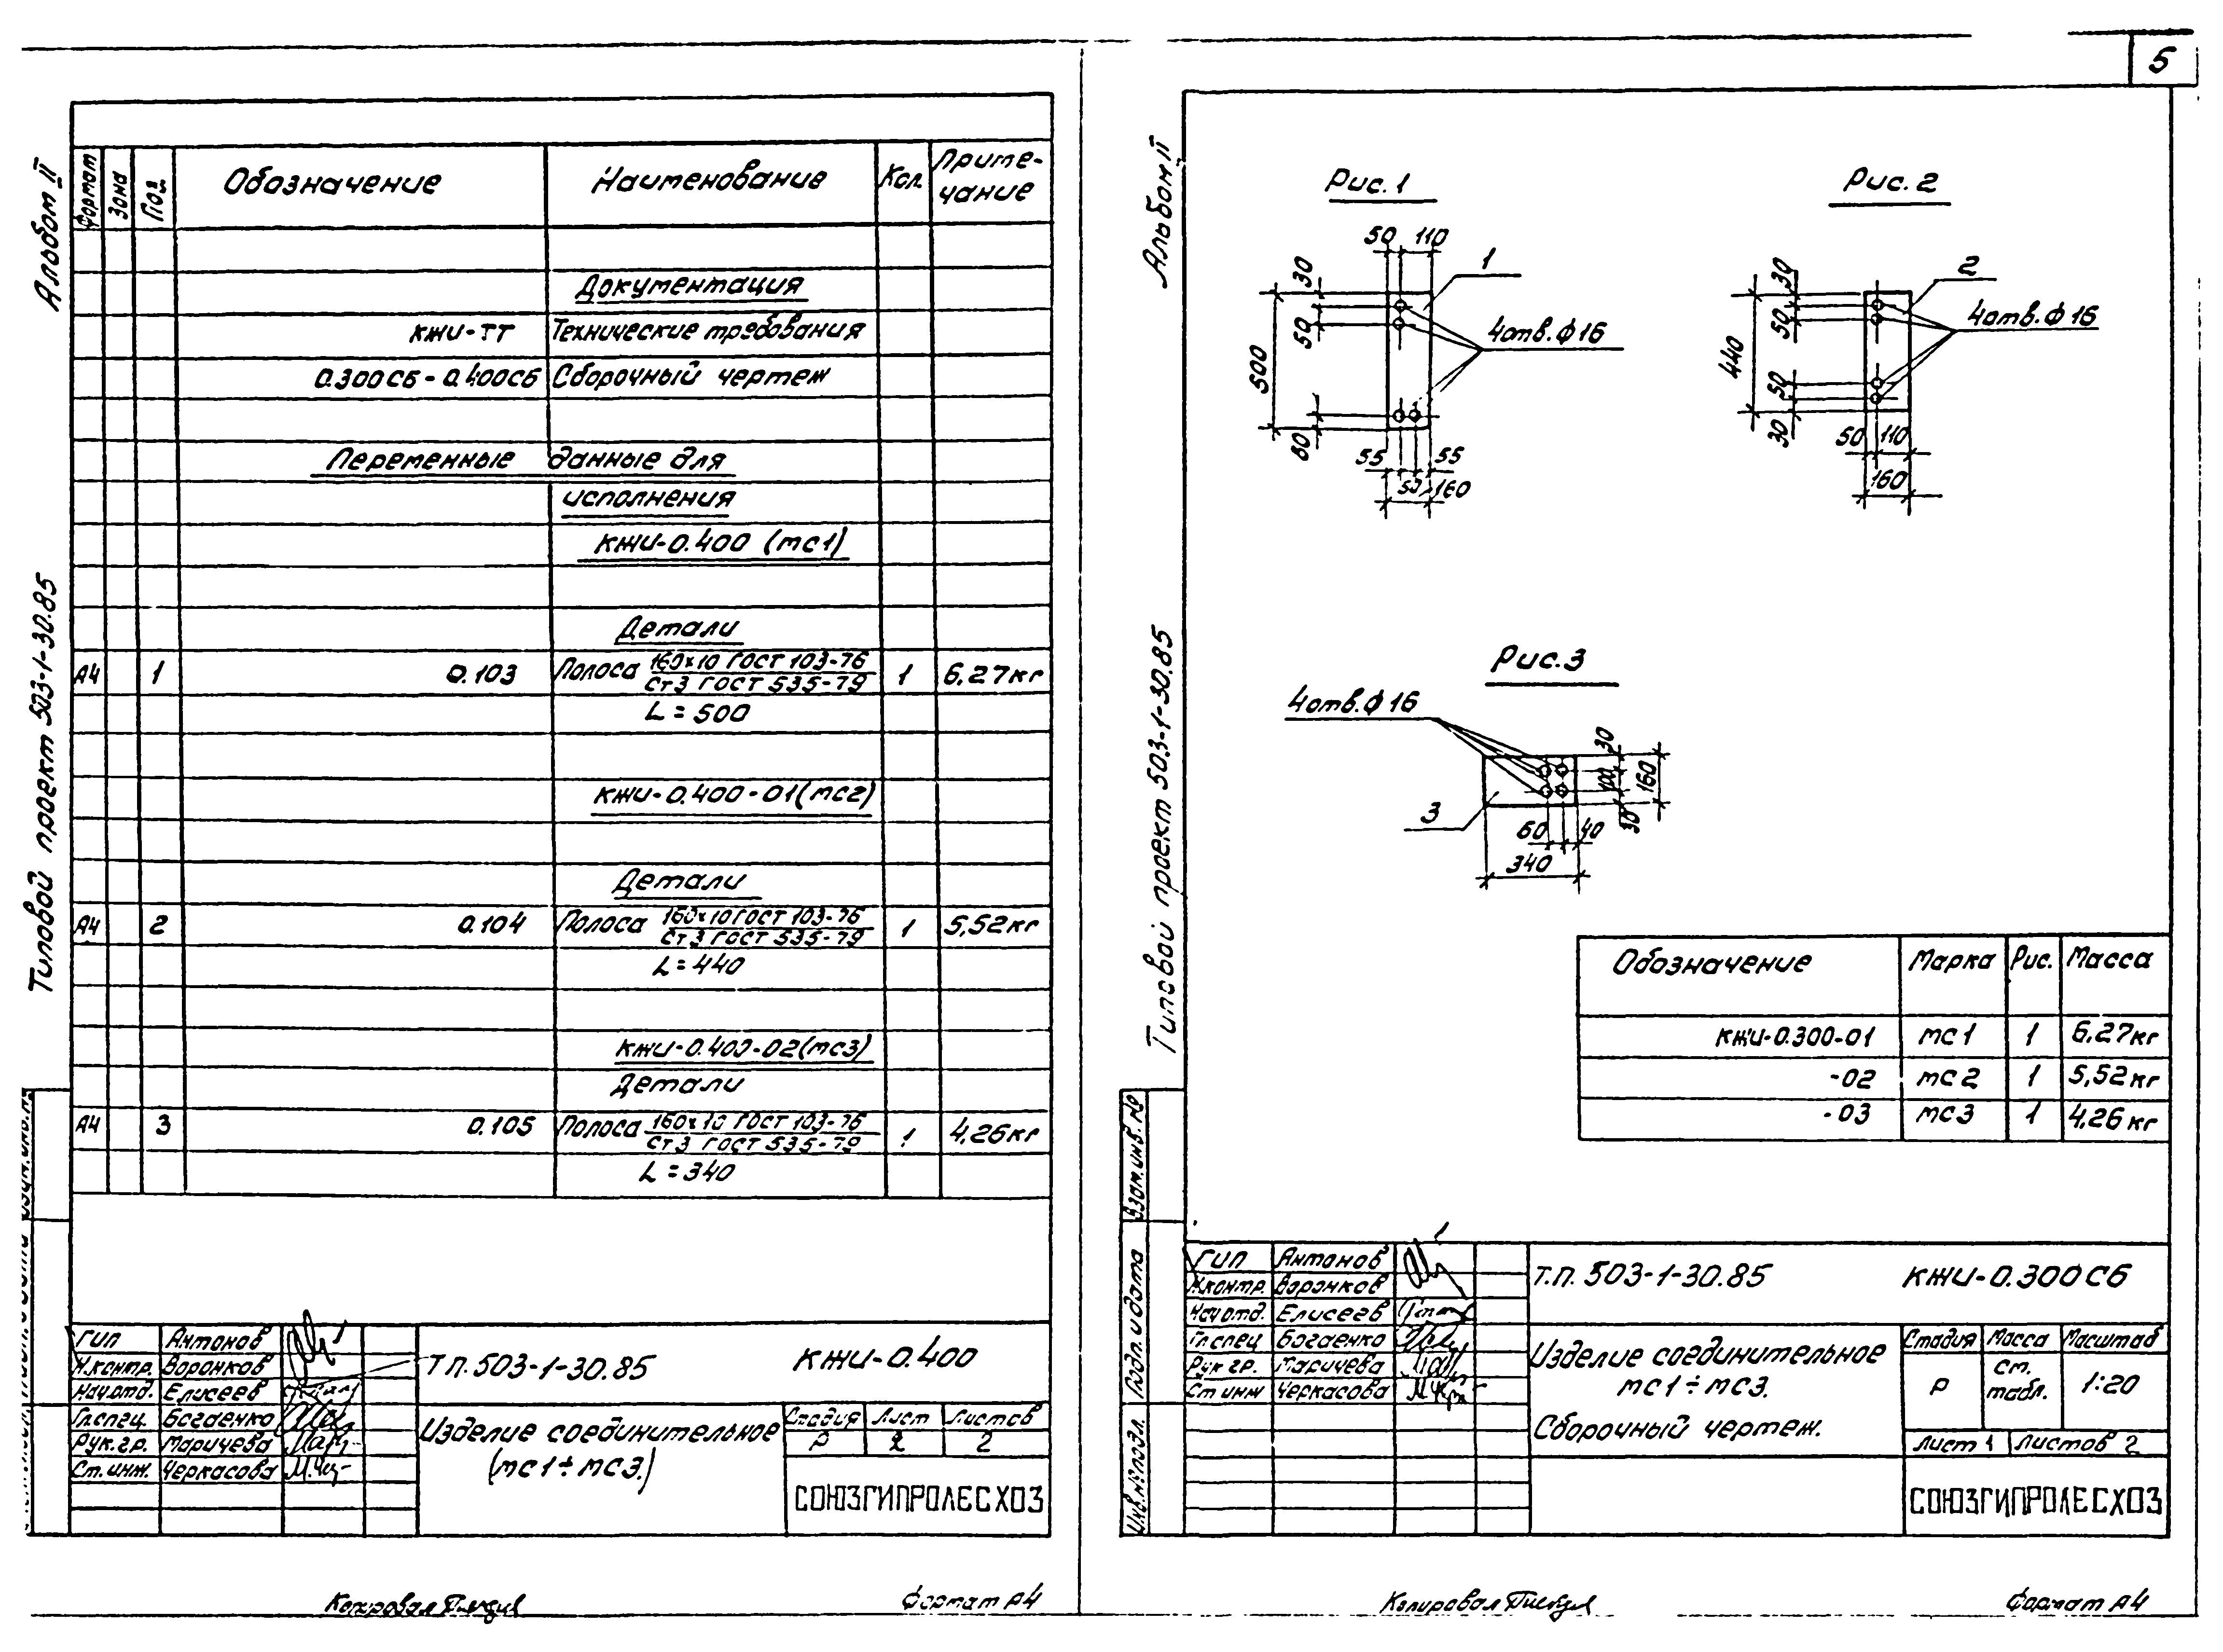 5
Альбом II
Типовой проект 503-1-30.85
Формат Зона Поз. Обозначение Наименование Кол. Приме-
чание
Документация
КЖИ-ТТ Технические требования
0.300СБ - 0.400СБ Сборочный чертеж
Переменные данные для
исполнения
КЖИ-0.400 (мс1)
Детали
А4 1 0.103 Полоса 160х10 ГОСТ 103-76 1 6,27кг
Ст3 ГОСТ 535-79
L = 500
КЖИ-0.400-01(мс2)
Детали
А4 2 0.104 Полоса 160х10 ГОСТ 103-76 1 5,52кг
Ст3 ГОСТ 535-79
L = 440
КЖИ-0.400-02(мс3)
Детали
А4 3 0.105 Полоса 160х10 ГОСТ 103-76 1 4,26кг
Ст3 ГОСТ 535-79
L = 340
ГИП Антонов
Н.контр. Воронков
Нач.отд. Елисеев
Гл.спец. Богаенко
Рук.гр. Маричева
Ст.инж. Черкасова
Т.П. 503-1-30.85 КЖИ-0.400
Изделие соединительное
(мс1÷мс3.)
Стадия Лист Листов
Р 2 2
СОЮЗГИПРОЛЕСХОЗ
Копировал
Формат А4
Альбом II
Типовой проект 503-1-30.85
Рис. 1
50 110
30
50
500
60
1
4отв.ф16
55 50 55
160
Рис. 2
30
50
440
50
30
2
4отв.ф16
50 110
160
Рис.3
4отв.ф16
3
30
100
30
160
60 40
340
Обозначение Марка Рис. Масса
КЖИ-0.300-01 мс1 1 6,27кг
-02 мс2 1 5,52кг
-03 мс3 1 4,26кг
Взам.инв.№
Подп. и дата
Инв.№подл.
ГИП Антонов
Н.контр. Воронков
Нач.отд. Елисеев
Гл.спец. Богаенко
Рук.гр. Маричева
Ст.инж Черкасова
Т.П. 503-1-30.85 КЖИ-0.300СБ
Изделие соединительное
мс1÷мс3.
Сборочный чертеж.
Стадия Масса Масштаб
Р см. табл. 1:20
Лист 1 Листов 2
СОЮЗГИПРОЛЕСХОЗ
Копировал
Формат А4